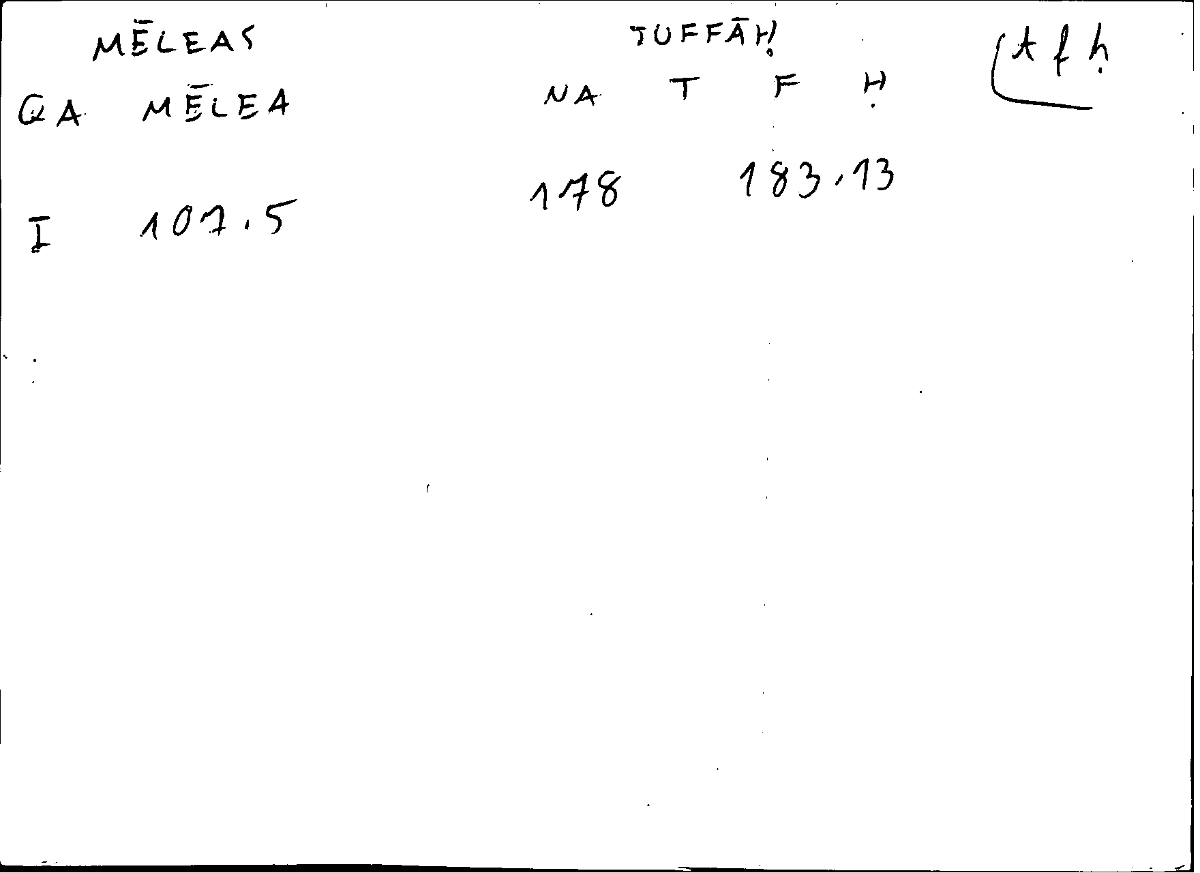 MĒLEAS TUFFĀḤ t f ḥ
QA MĒLEA NA T F Ḥ
I 107.5 178 183.13